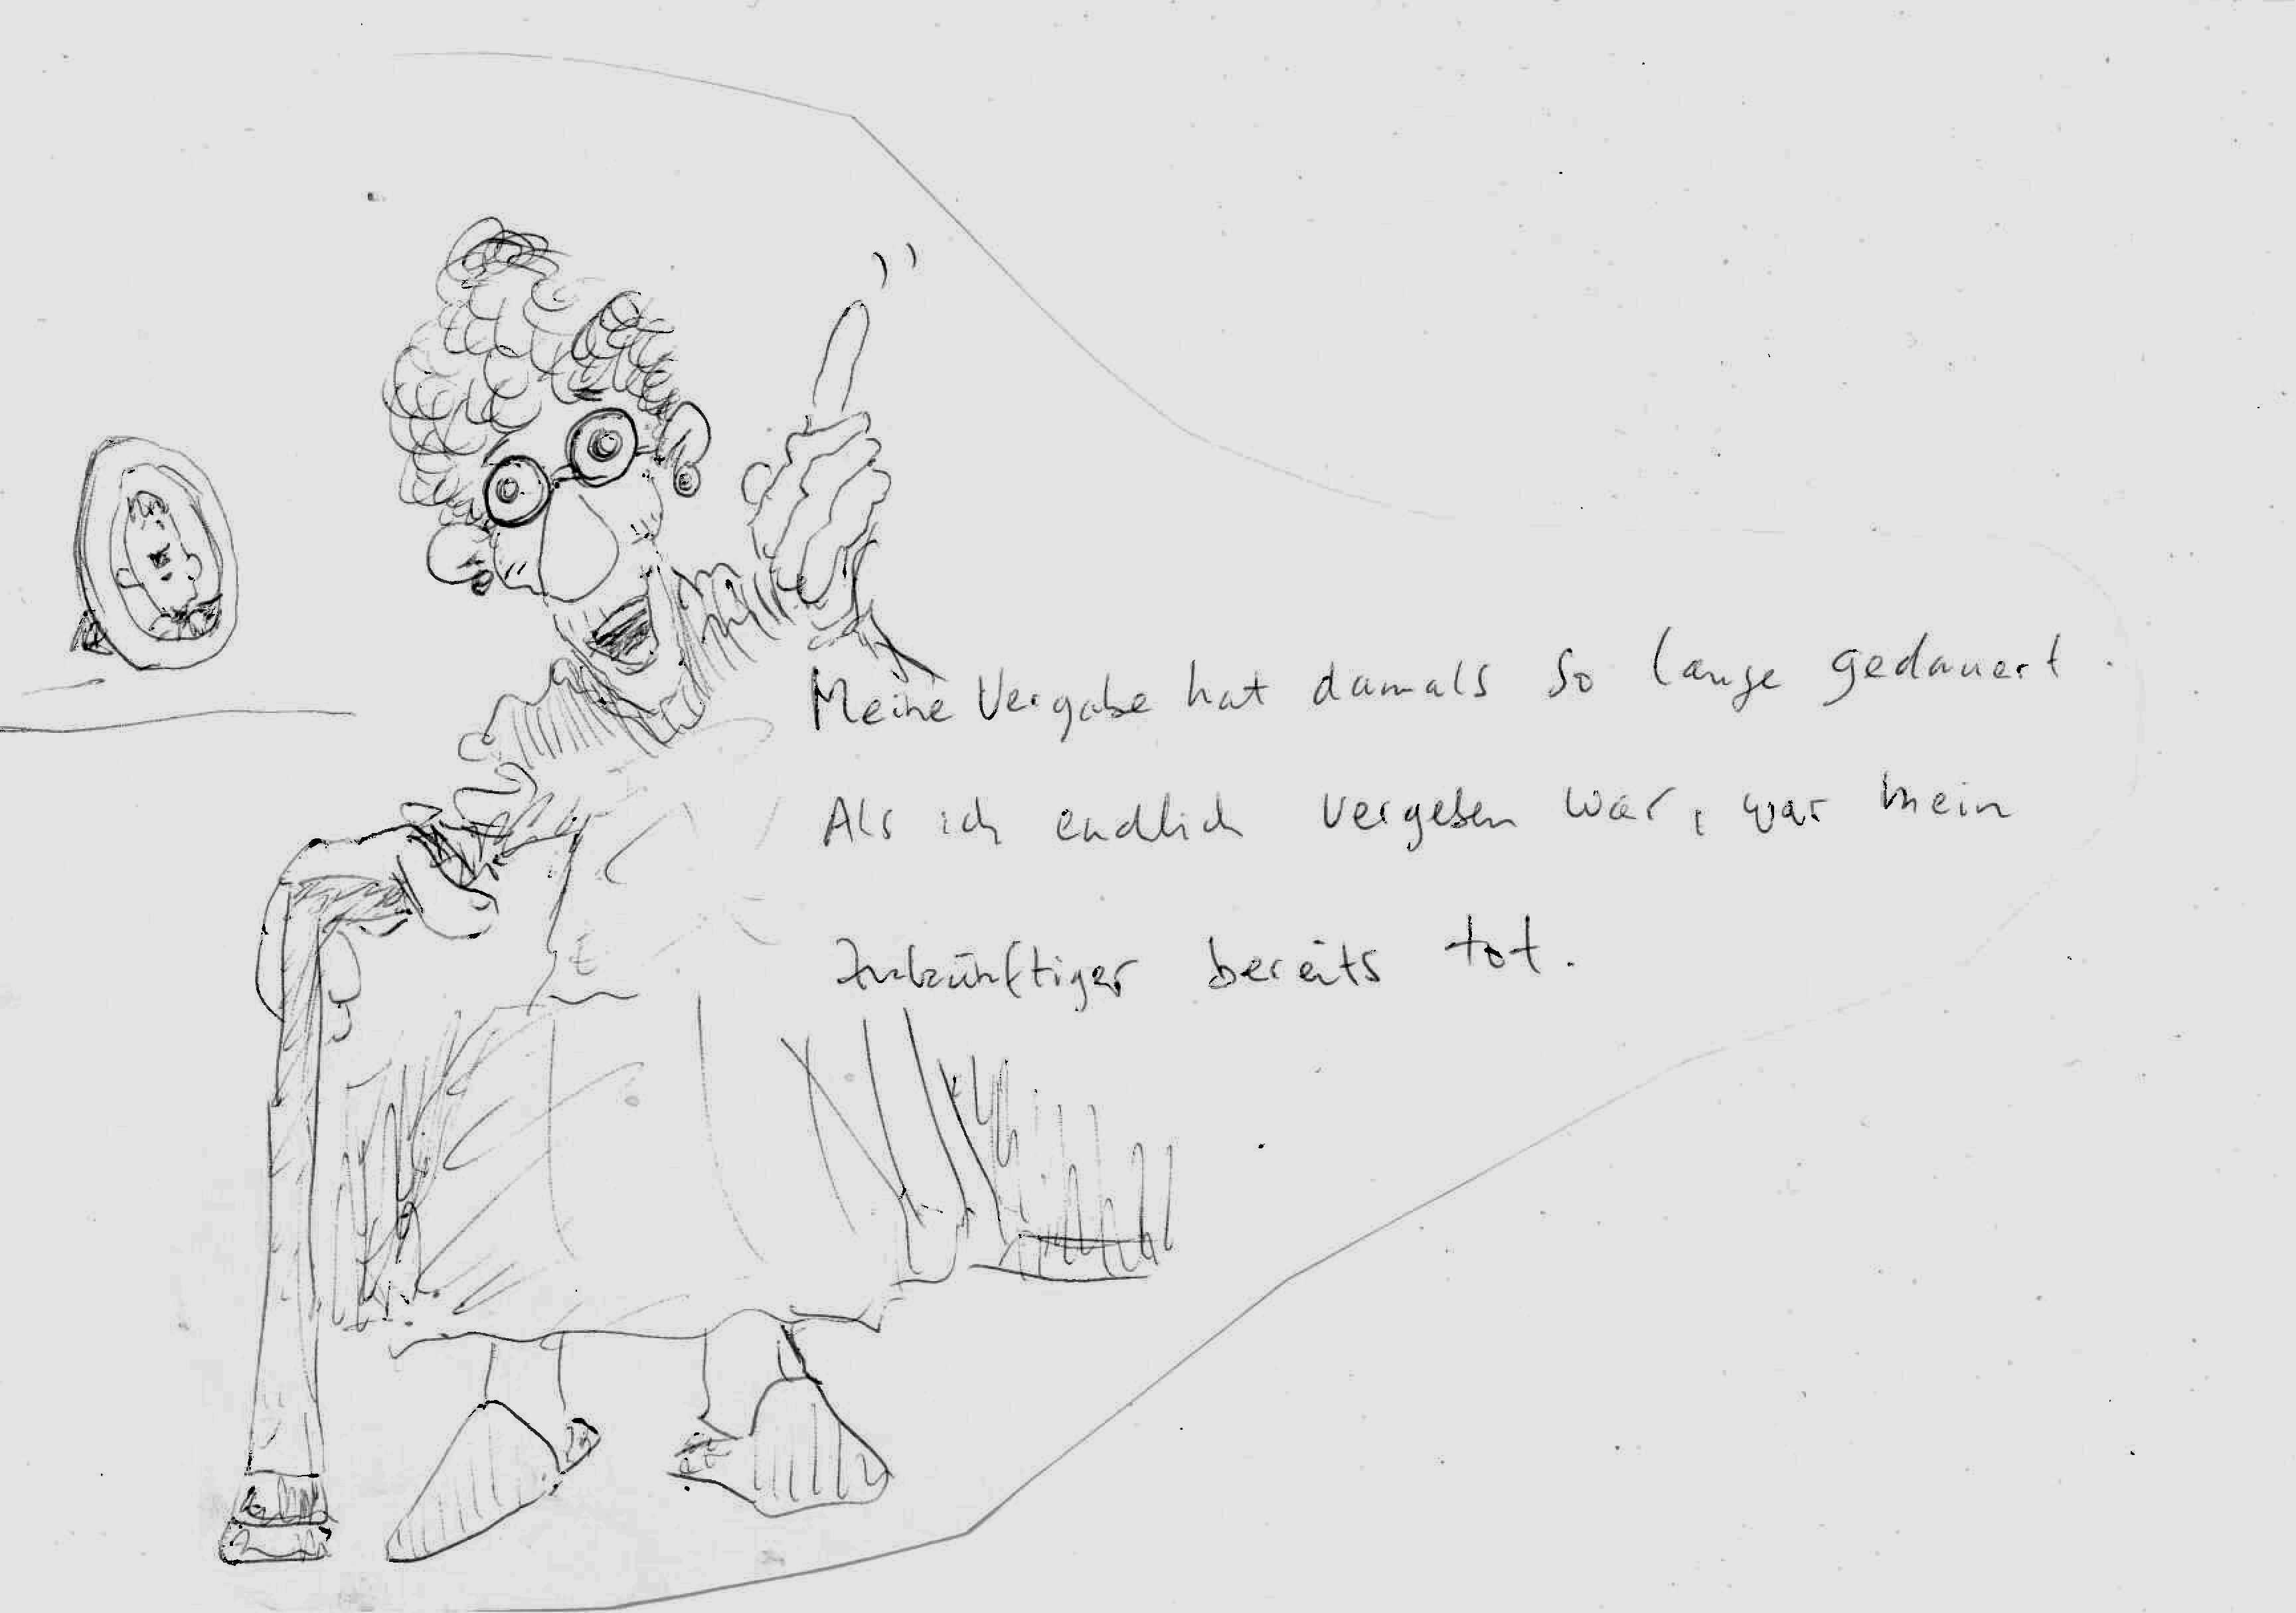 Meine Vergabe hat damals so lange gedauert.
Als ich endlich vergeben war, war mein
Zukünftiger bereits tot.